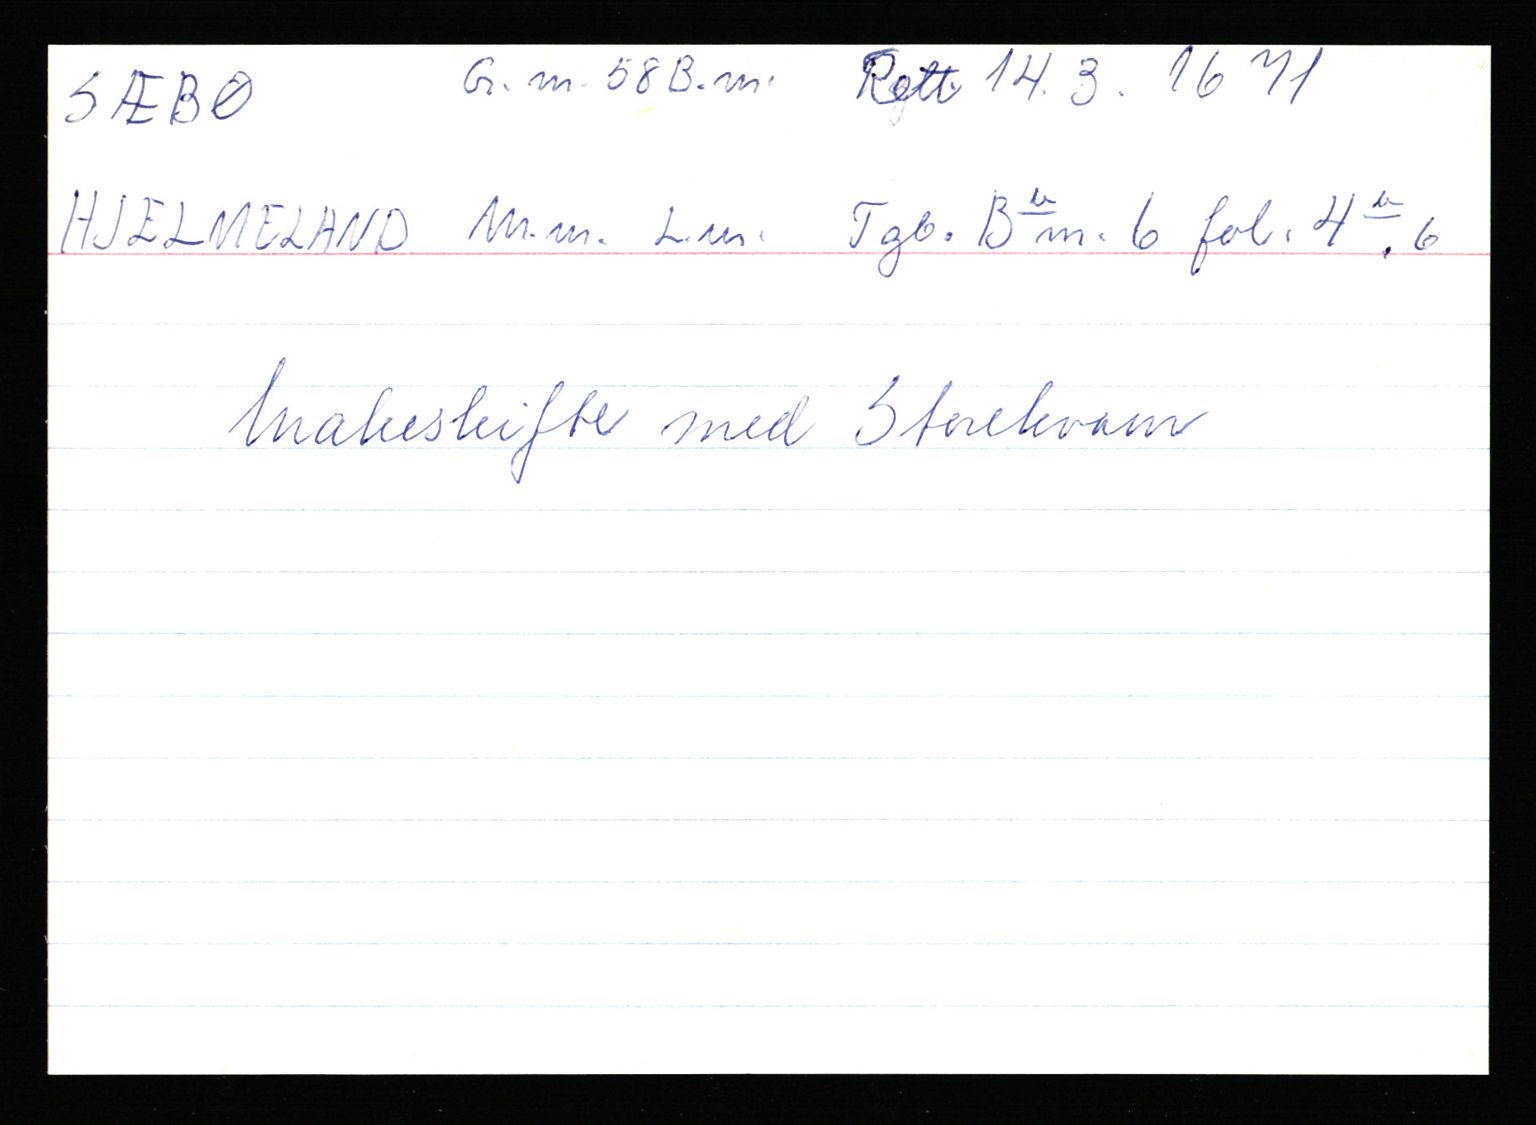 SÆBØ G.nr. 58 B.nr. Rett 14.3.1671
HJELMELAND M.nr. L.nr. Tgb. B nr. 6 fol. 4 b. 6
Makeskifte med Storekvam